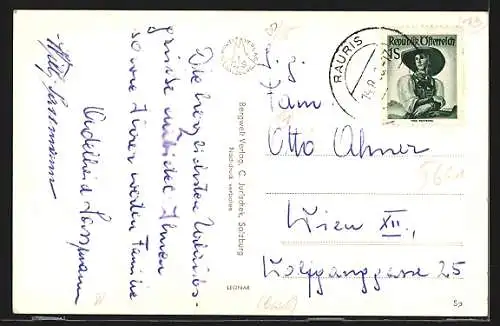 Die herzlichsten Urlaubs-
grüsse entbietet Ihnen
so wie Ihrer werten Familie
Adelheid
Willy
Bergwelt-Verlag, C. Jurischek, Salzburg
Nachdruck verboten
LEONAR
RAURIS
Republik Österreich
1S
Fam.
Otto Ahner
Wien XII.,
Wolfganggasse 25
Sp